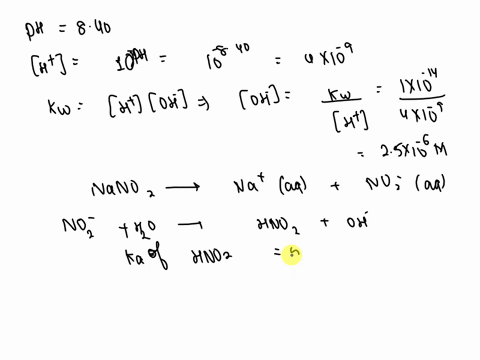 pH = 8.40
[H⁺] = 10^-pH = 10^-8.40 = 4×10⁻⁹
Kw = [H⁺][OH⁻] ⇒ [OH⁻] = Kw/[H⁺] = 1×10⁻¹⁴/4×10⁻⁹
= 2.5×10⁻⁶ M
NaNO₂ → Na⁺ (aq) + NO₂⁻ (aq)
NO₂⁻ + H₂O → HNO₂ + OH⁻
Ka of HNO₂ =